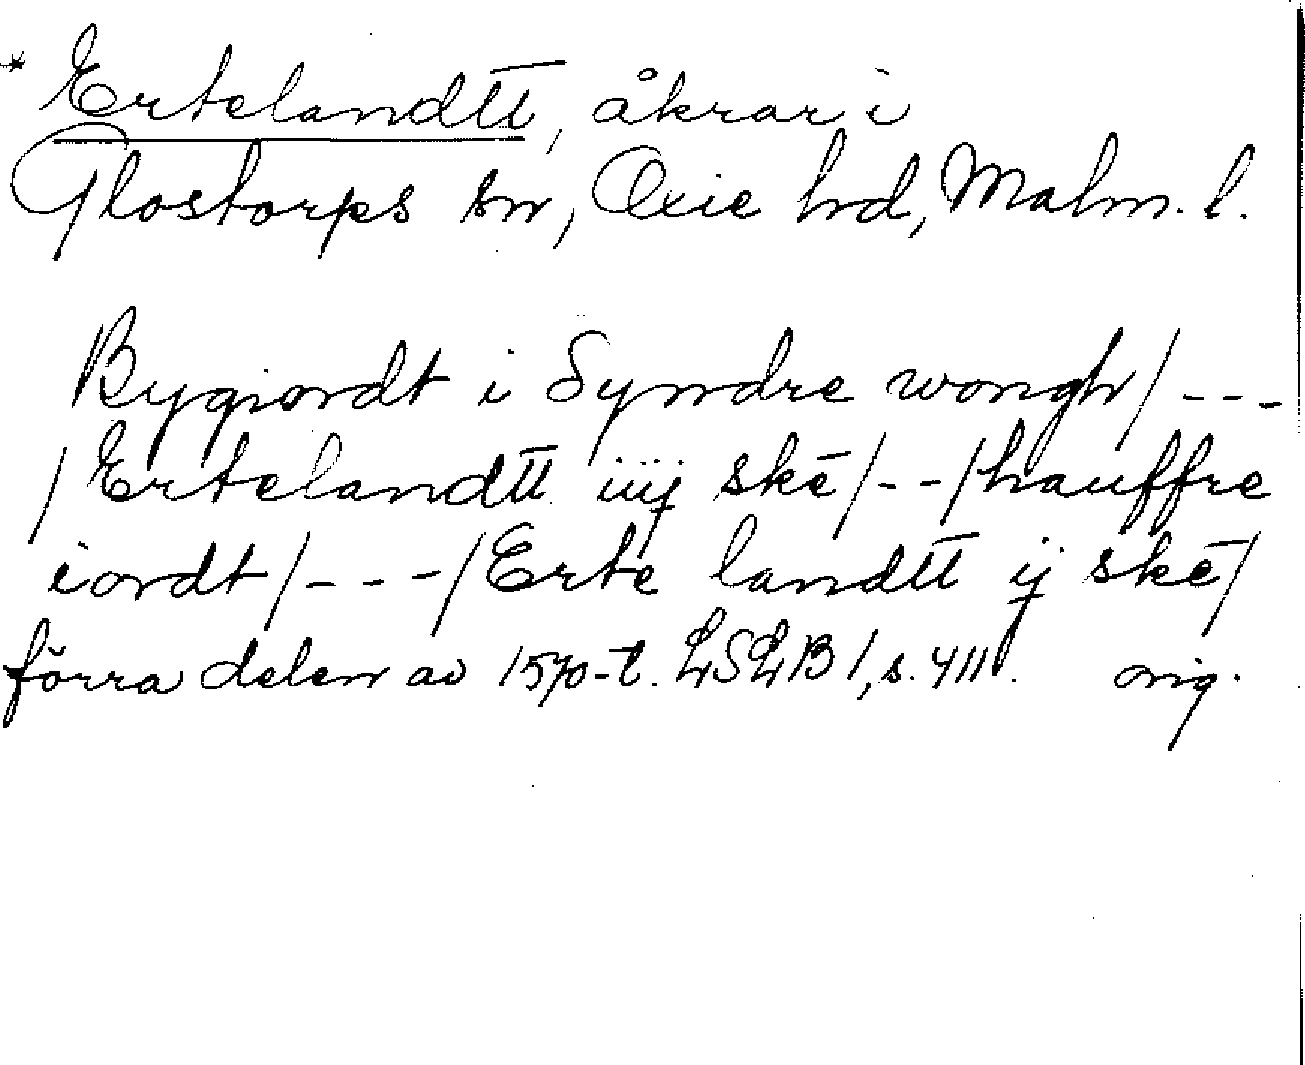 * Ertelandtt, åkrar i
Glostorps sn, Oxie hrd, Malm. l.
Bygiordt i Syndre wongh/---
/Ertelandtt iiij skē/--/hauffre
iordt/---/Erte landtt ij skē/
förra delen av 1570-t. LSLB 1, s. 411. orig.